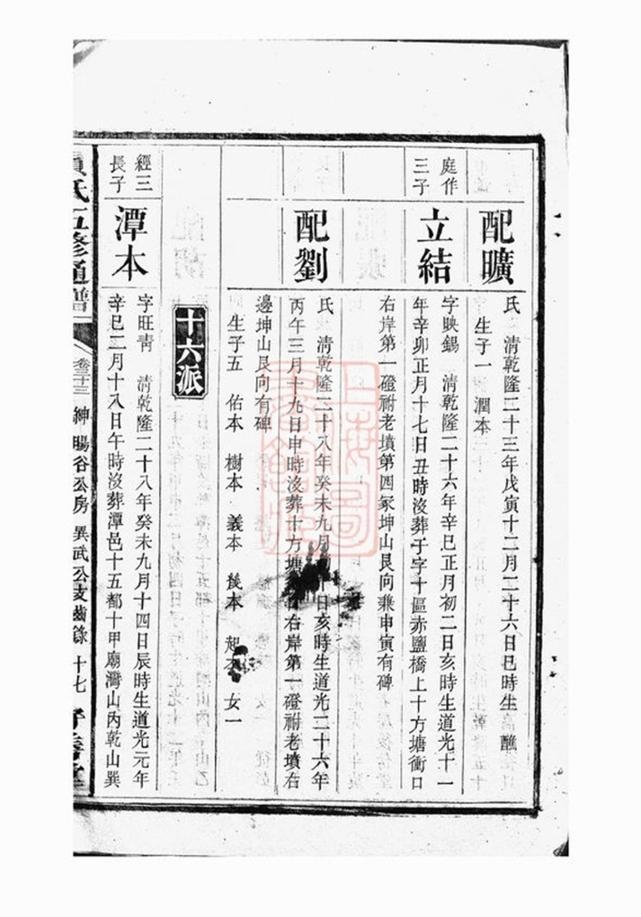 配曠
氏 清乾隆二十三年戊寅十二月二十六日巳時生 醮
生子一 潤本
庭作
三子
立結
字映錫 清乾隆二十六年辛巳正月初二日亥時生道光十一
年辛卯正月十七日丑時沒葬于字十區赤鹽橋上十方塘衝口
右岸第一磴祔老墳第四冢坤山艮向兼申寅有碑
配劉
氏 清乾隆二十八年癸未九月初 日亥時生道光二十六年
丙午三月十九日申時沒葬十方塘 右岸第一磴祔老墳右
邊坤山艮向有碑
生子五 佑本 樹本 義本 本 起本 女一
十六派
經三
長子
潭本
字旺青 清乾隆二十八年癸未九月十四日辰時生道光元年
辛巳二月十八日午時沒葬潭邑十五都十甲廟灣山內乾山巽
氏五修通譜
卷三十三 紳暘谷公房 異武公支齒錄 十七